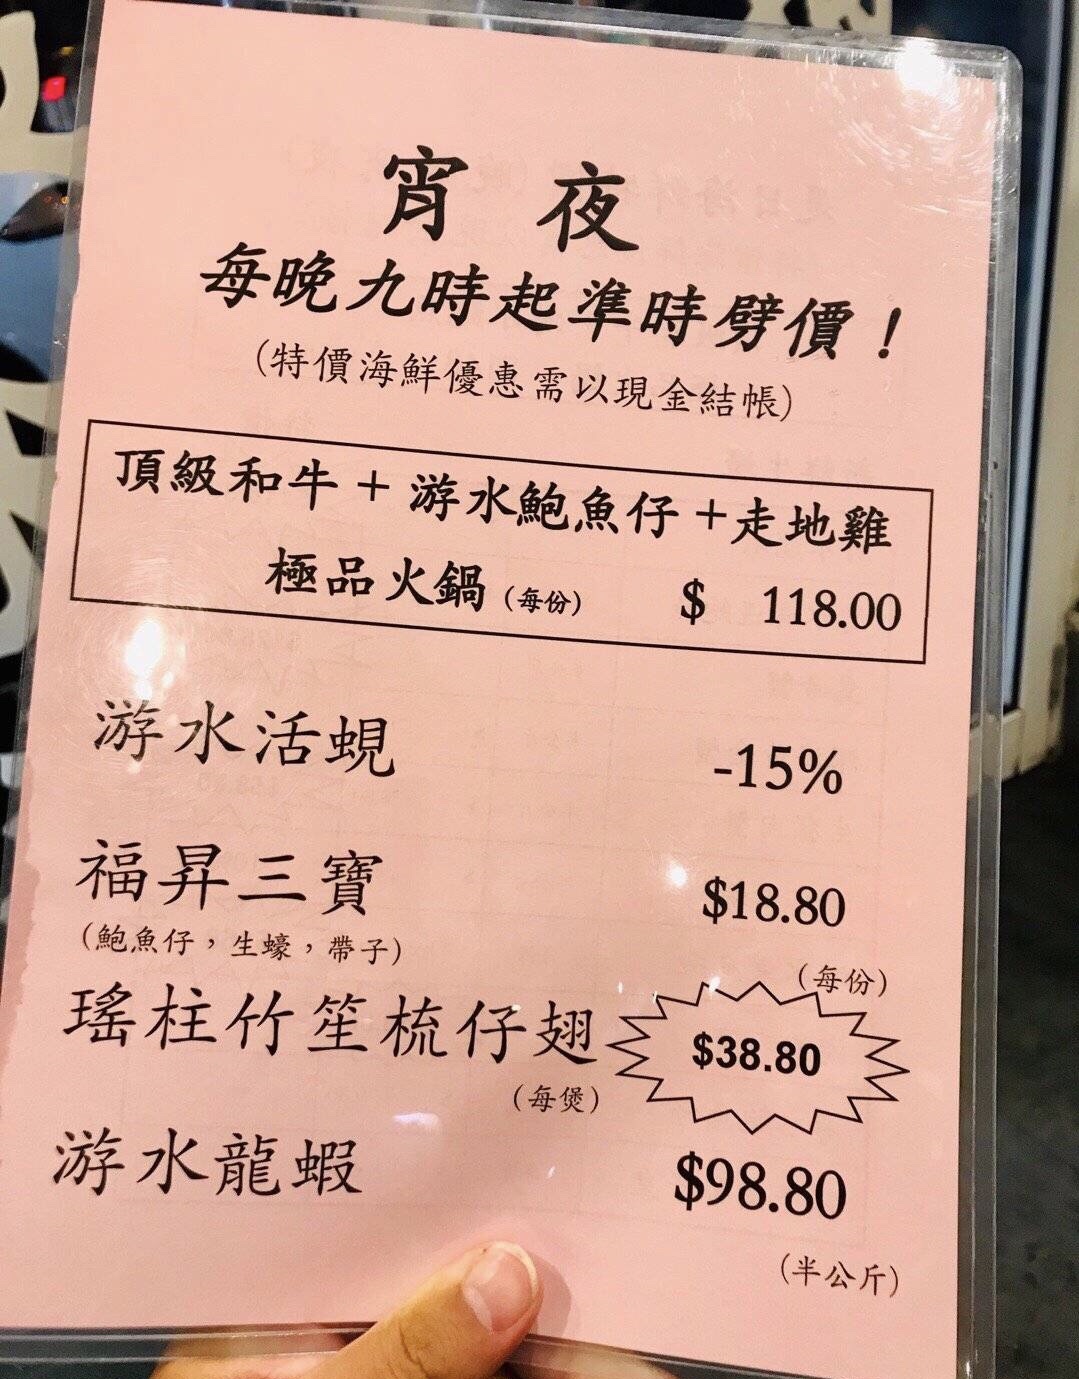 宵夜
每晚九時起準時劈價！
（特價海鮮優惠需以現金結帳）
頂級和牛＋游水鮑魚仔＋走地雞
極品火鍋（每份） $ 118.00
游水活蜆 -15%
福昇三寶 $18.80
（鮑魚仔，生蠔，帶子）
（每份）
瑤柱竹笙梳仔翅 $38.80
（每煲）
游水龍蝦 $98.80
（半公斤）